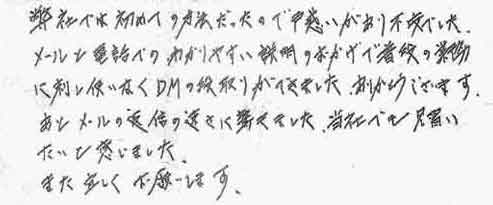 弊社では初めての方法だったので戸惑いがあり不安でした。
メールと電話でのわかりやすい説明のおかげで着後の業務
に差し使いなくDMの段取りができました。ありがとうございます。
あとメールの返信の速さに驚きました。当社でも見習い
たいと感じました。
また宜しくお願いします。